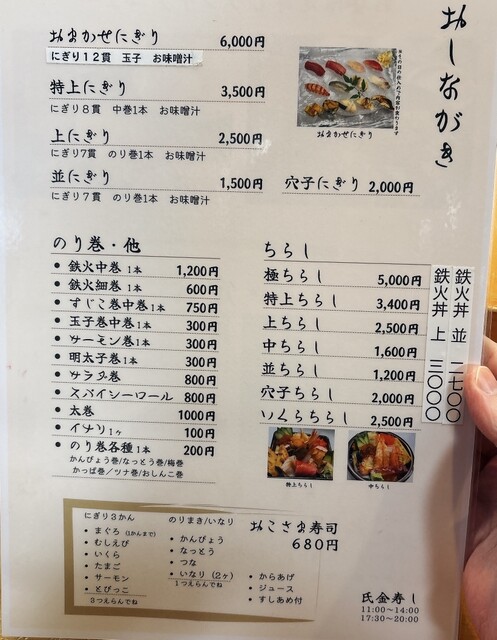 おしながき
おまかせにぎり 6,000円
にぎり12貫 玉子 お味噌汁
特上にぎり 3,500円
にぎり8貫 中巻1本 お味噌汁
上にぎり 2,500円
にぎり7貫 のり巻1本 お味噌汁
並にぎり 1,500円
にぎり7貫 のり巻1本 お味噌汁
おまかせにぎり
穴子にぎり 2,000円
のり巻・他
• 鉄火中巻 1本 1,200円
• 鉄火細巻 1本 600円
• すじこ巻中巻 1本 750円
• 玉子巻中巻 1本 300円
• サーモン巻 1本 300円
• 明太子巻 1本 300円
• サラダ巻 800円
• スパイシーロール 800円
• 太巻 1000円
• イナリ 1ヶ 100円
• のり巻各種 1本 200円
かんぴょう巻/なっとう巻/梅巻
かっぱ巻/ツナ巻/おしんこ巻
ちらし
極ちらし 5,000円
特上ちらし 3,400円
上ちらし 2,500円
中ちらし 1,600円
並ちらし 1,200円
穴子ちらし 2,000円
いくらちらし 2,500円
特上ちらし
中ちらし
鉄火丼 並 一七〇〇
鉄火丼 上 三〇〇〇
おこさま寿司
680円
にぎり3かん
• まぐろ (1かんまで)
• むしえび
• いくら
• たまご
• サーモン
• とびっこ
3つえらんでね
のりまき/いなり
• かんぴょう
• なっとう
• つな
• いなり (2ヶ)
1つえらんでね
• からあげ
• ジュース
• すしあめ付
氏金寿し
11:00~14:00
17:30~20:00